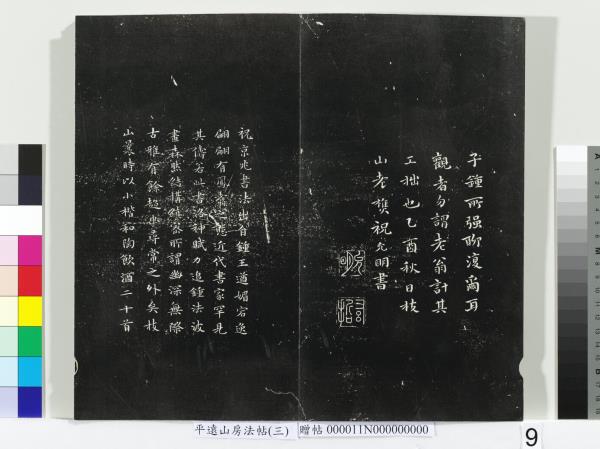 子鍾所强聊復爾耳
觀者勿謂老翁計其
工拙也乙酉秋日枝
山老樵祝允明書
祝京兆書法出自鍾王遒媚宕逸
翩翩有鳳
近代書家罕見
其儔若此書洛神賦力追鍾法波
畫森然結構
所謂幽深無際
古雅有餘超
尋常之外矣枝
山曩時以小楷和陶飲酒二十首
平遠山房法帖(三) 贈帖 000011N000000000
9